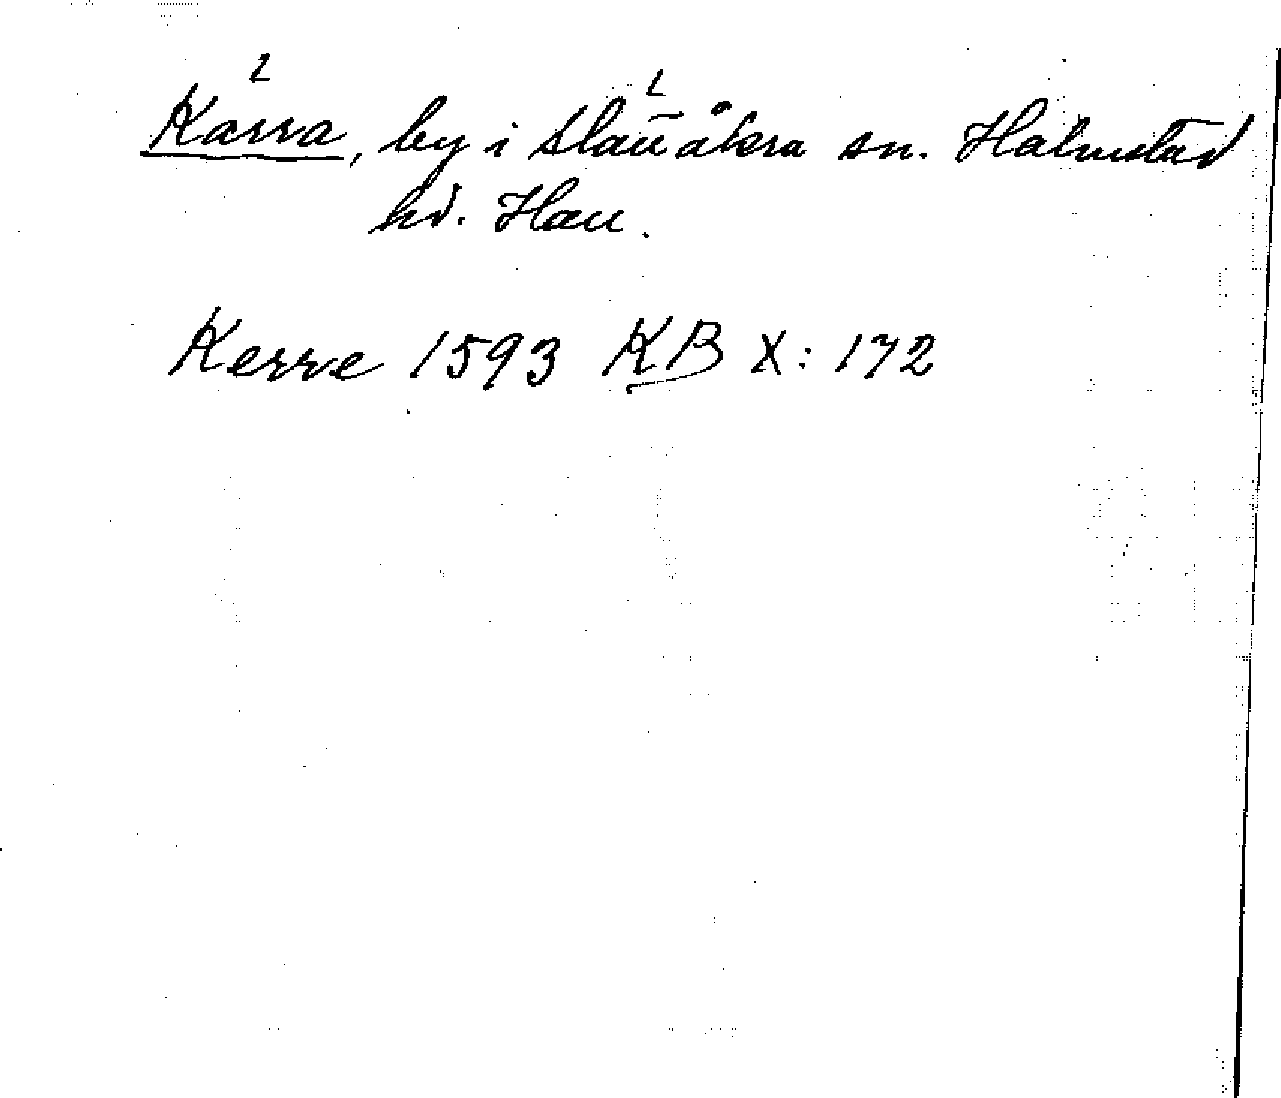 Kärra, by i Slättåkra sn. Halmstad
hd. Hall.
Kerre 1593 KB X: 172